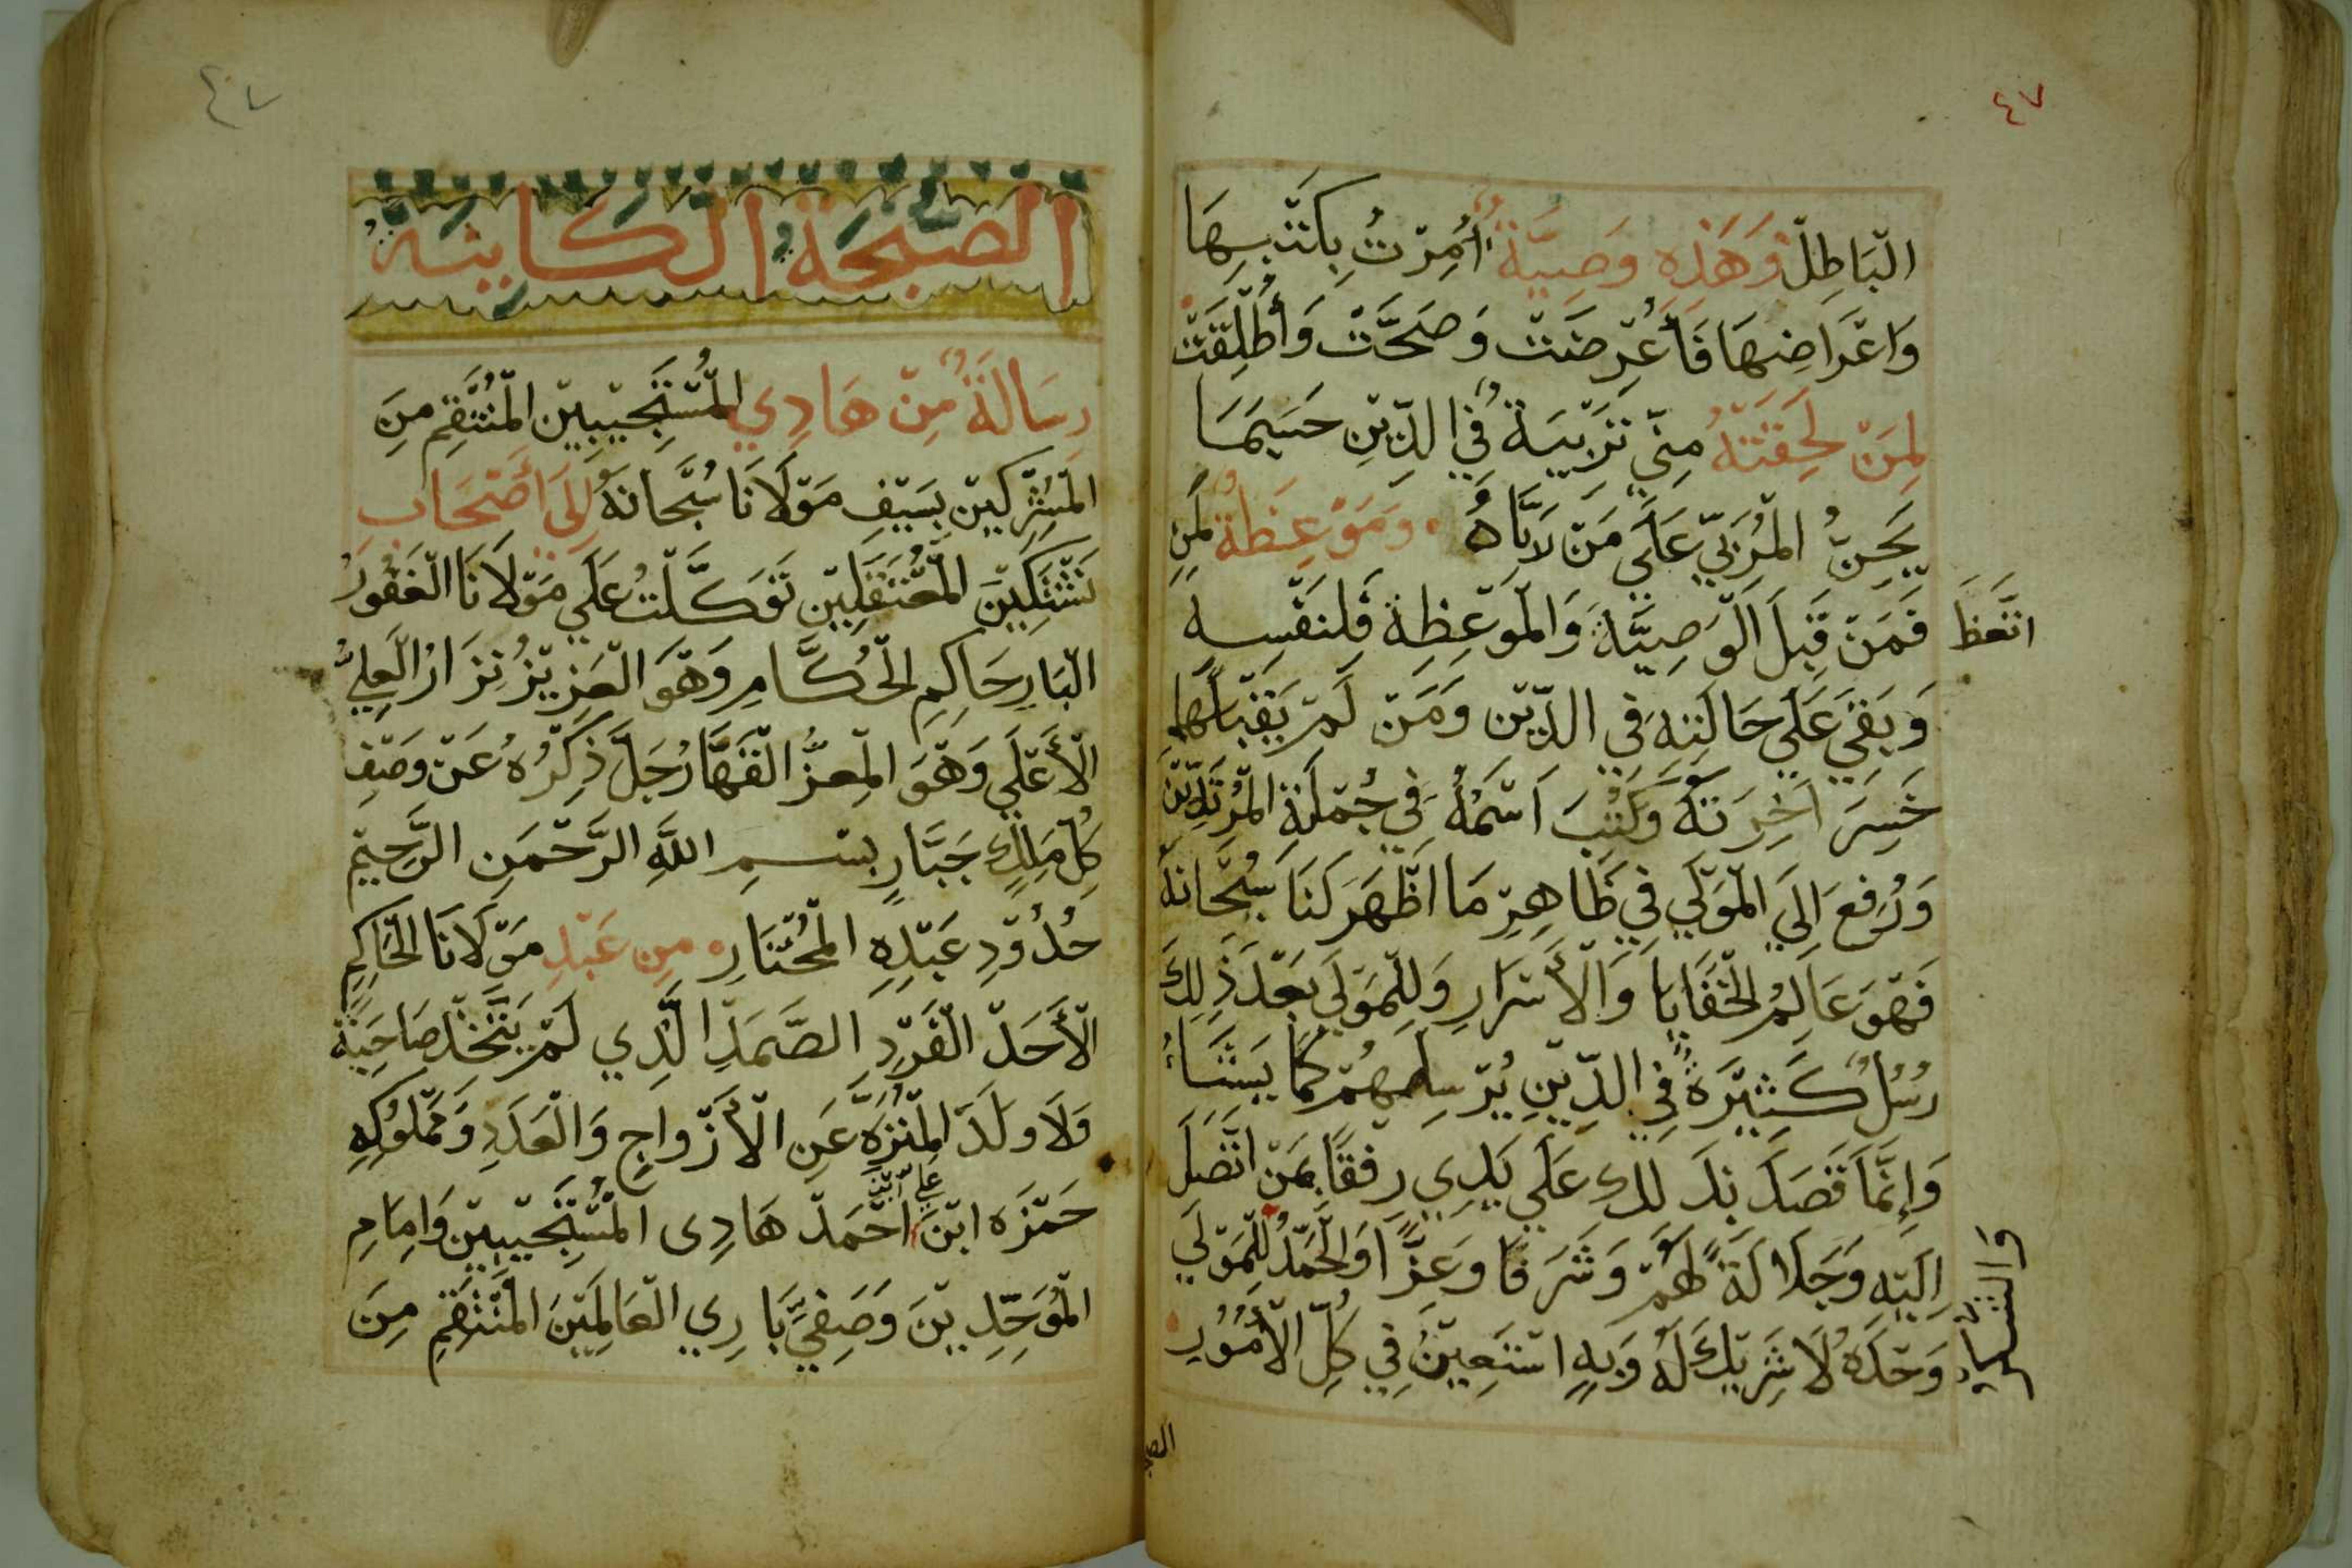 ٤٧
الْبَاطِلْ وَهَذِهِ وَصِيَّةٌ أُمِرْتُ بِكَتْبِهَا
وَاعْرَاضِهَا فَأُعْرِضَتْ وَصَحَّتْ وَأُطْلِقَتْ
لِمَنْ لَحِقَتْهُ مِنِّي تَرْبِيَةٌ فِي الدِّيْنِ حَسَبَمَا
يَحِنُّ الْمُرَبِّي عَلَي مَنْ رَبَّاهُ وَمَوْعِظَةٌ لِمَنِ
اتَّعَظَ فَمَنْ قَبِلَ الْوَصِيَّةَ وَالْمَوْعِظَةَ فَلِنَفْسِهِ
وَبَقِيَ عَلَي حَالَتِهِ فِي الدِّيْنِ وَمَنْ لَمْ يَقْبَلْهَا
خَسِرَ اَخِرَتَهُ وَكُتِبَ اَسْمُهُ فِي جُمْلَةِ الْمُرْتَدِّيْنَ
وَرُفِعَ اِلَيَ الْمَوْلَي فِي ظَاهِرِ مَا اَظْهَرَ لَنَا سُبْحَانَهُ
فَهْوَ عَالِمُ الْخَفَايَا وَالْأَسْرَارِ وَلِلْمَوْلَي بَعْدَ ذَلِكَ
رُسُلٌ كَثِيْرَةٌ فِي الدِّيْنِ يُرْسِلُهُمْ كَمَا يَشَاءُ
وَإِنَّمَا قَصَدَ بِذَلِكَ عَلَي يَدِي رِفْقًا بِمَنْ اتَّصَلَ
اِلَيْهِ وَجَلَالَةً لَهُمْ وَشَرَفًا وَعِزًّا وَالْحَمْدُ لِلْمَوْلَي
وَالشُّكْرُ
وَحْدَهُ لَا شَرِيْكَ لَهُ وَبِهِ اسْتَعِيْنُ فِي كُلِّ الْأُمُوْرِ
٤٧
الصبحة الكاينة
رِسَالَةٌ مِنْ هَادِي الْمُسْتَجِيْبِيْنَ الْمُنْتَقِمِ مِنَ
الْمُشْرِكِيْنَ بِسَيْفِ مَوْلَانَا سُبْحَانَهُ اِلَيَ أَصْحَابِ
الْمُعْتَقَلِيْنَ تَوَكَّلْتُ عَلَي مَوْلَانَا الْغَفُوْرِ
الْبَارِ حَاكِمِ الْحُكَّامِ وَهْوَ الْعَزِيْزُ نِزَارُ الْعَلِيُّ
الْأَعْلَي وَهْوَ الْمُعِزُّ الْقَهَّارُ جَلَّ ذِكْرُهُ عَنْ وَصْفِ
كُلِّ مَلِكٍ جَبَّارٍ بِسْمِ اللَّهِ الرَّحْمَنِ الرَّحِيْمِ
حُدُوْدِ عَبْدِهِ الْمُخْتَارِ مِن عَبْدِ مَوْلَانَا الْحَاكِمِ
الْأَحَدْ الْفَرْدِ الصَّمَدِ الَّذِي لَمْ يَتَّخِذْ صَاحِبَةً
وَلَا وَلَدْ الْمُنَزَّهِ عَنِ الْأَزْوَاجِ وَالْعَدَدِ وَمَمْلُوْكِهِ
حَمْزَه ابْنِ عَلِي ابْنِ أَحْمَدْ هَادِى الْمُسْتَجِيْبِيْنَ وَاِمَامِ
الْمُوَحِّدِيْنَ وَصَفِيِّ بَارِي الْعَالَمِيْنَ الْمُنْتَقِمِ مِنَ